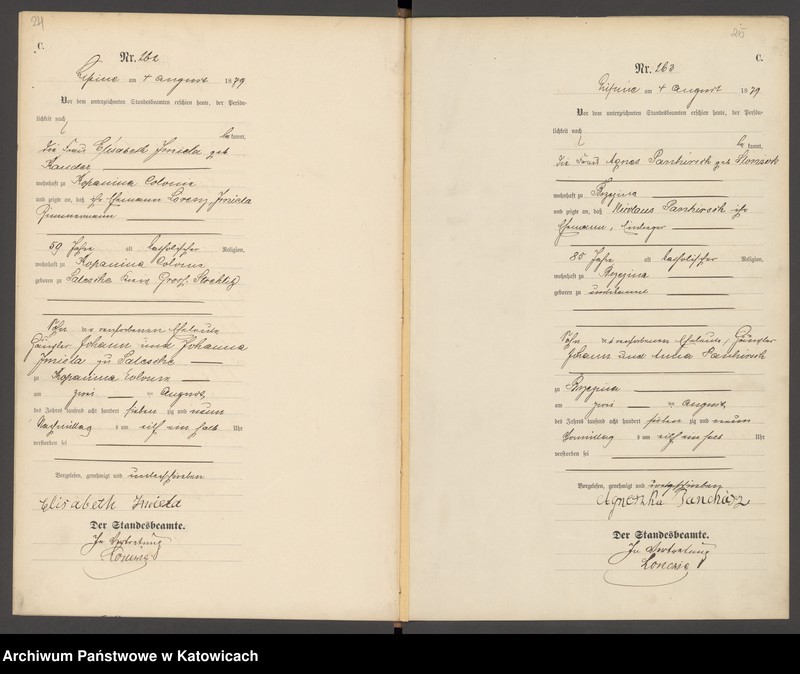 24
C.
Nr. 262
Lipine am 4 August 1879
Vor dem unterzeichneten Standesbeamten erschien heute, der Persön-
lichkeit nach
be kannt,
die Frau Elisabeth Imiela geb
Kandor
wohnhaft zu Kopanina Colonie
und zeigte an, daß ihr Ehemann Lorenz Imiela
Zimmermann
59 Jahre alt katholischer Religion,
wohnhaft zu Kopanina Colonie
geboren zu Salesche Kreis Gross Strehlitz
Sohn der verstorbenen Eheleute
Häusler Johann und Johanna
Imiela zu Salesche
zu Kopanina Colonie
am zwei ten August
des Jahres tausend acht hundert sieben zig und neun
Nachmittag s um eilf ein halb Uhr
verstorben sei
Vorgelesen, genehmigt und unterschrieben
Elisabeth Imiela
Der Standesbeamte.
In Vertretung
25
C.
Nr. 263
Lipine am 4 August 1879
Vor dem unterzeichneten Standesbeamten erschien heute, der Persön-
lichkeit nach
be kannt,
die Frau Agnes Pankirsch geb
wohnhaft zu Brzezina
und zeigte an, daß Nicolaus Pankirsch ihr
Ehemann, Einlieger
85 Jahre alt katholischer Religion,
wohnhaft zu Brzezina
geboren zu unbekannt
Sohn der verstorbenen Eheleute, Häusler
Johann und Anna Pankirsch
zu Brzezina
am zwei ten August
des Jahres tausend acht hundert sieben zig und neun
Vormittag s um eilf ein halb Uhr
verstorben sei
Vorgelesen, genehmigt und unterschrieben
Agneszka
Der Standesbeamte.
In Vertretung
Archiwum Państwowe w Katowicach